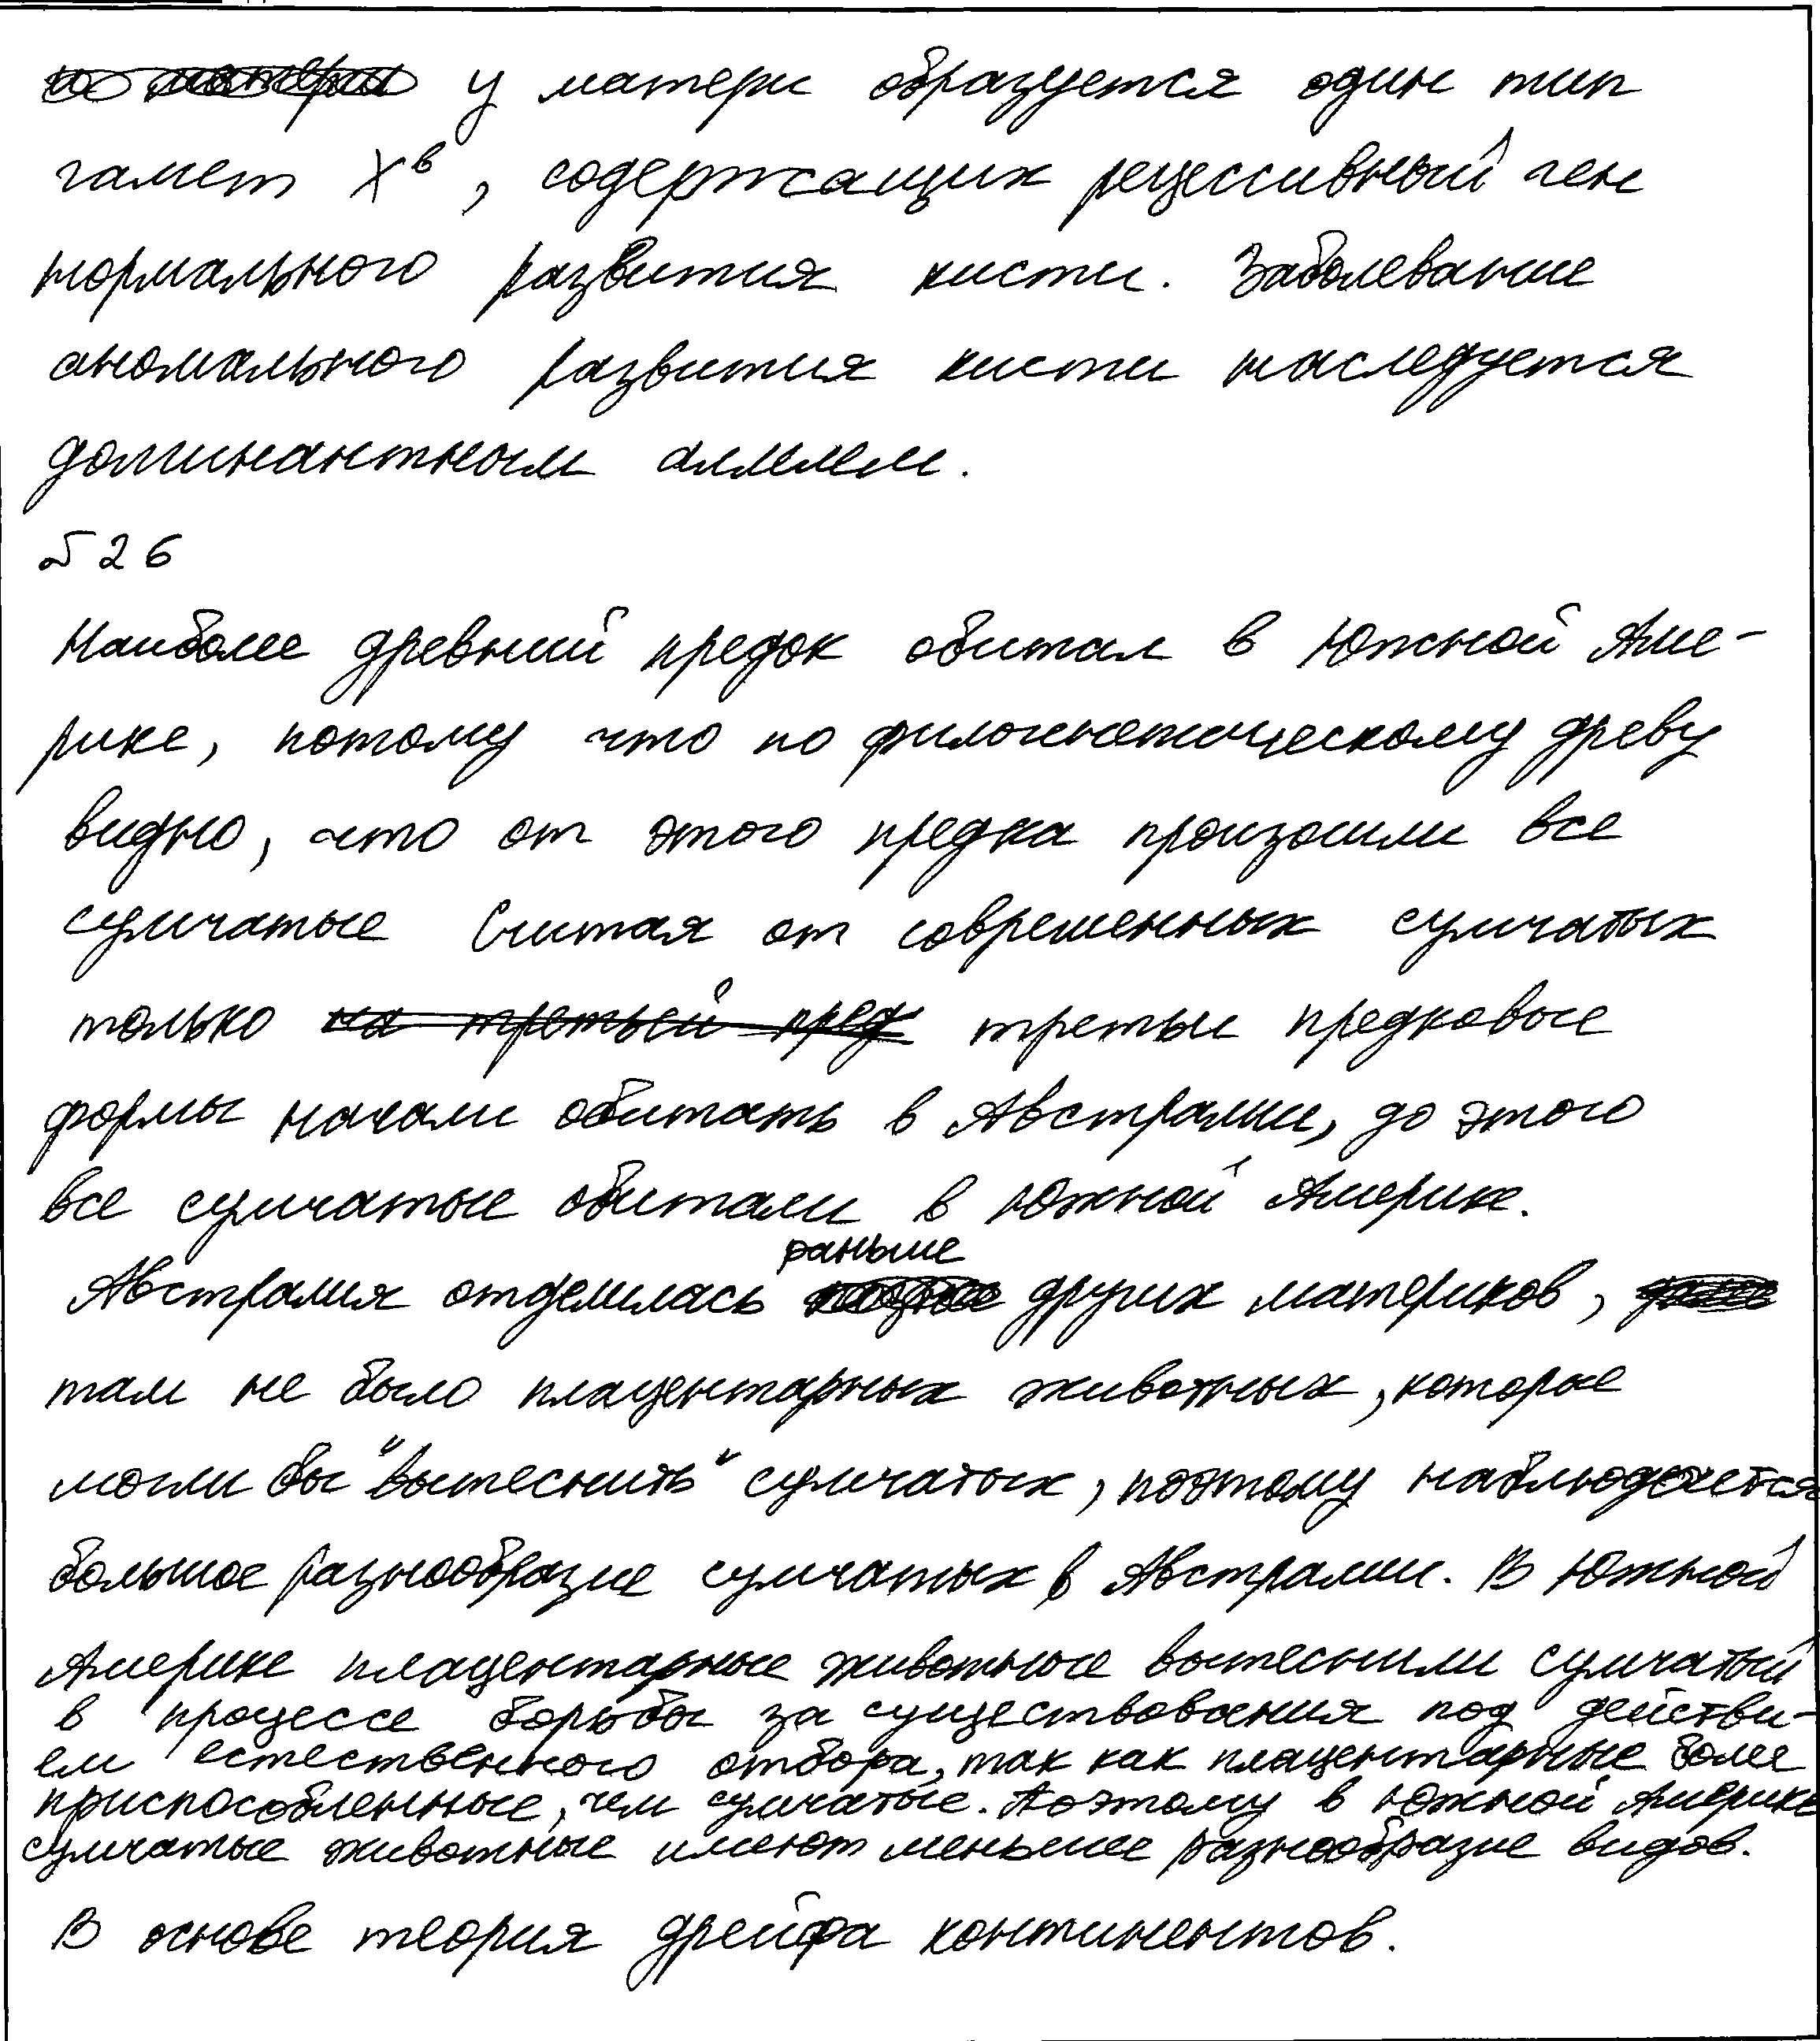 у матери образуется один тип
гамет Xᵇ, содержащих рецессивный ген
нормального развития кисти. Заболевание
аномального развития кисти наследуется
доминантным аллелем.
№ 26
Наиболее древний предок обитал в Южной Аме-
рике, потому что по филогенетическому древу
видно, что от этого предка произошли все
сумчатые Считая от современных сумчатых
только на третьей пред третьи предковые
формы начали обитать в Австралии, до этого
все сумчатые обитали в Южной Америке.
раньше
Австралия отделилась других материков,
там не было плацентарных животных, которые
могли бы "вытеснить" сумчатых, поэтому наблюдается
большое разнообразие сумчатых в Австралии. В Южной
Америке плацентарные животные вытеснили сумчатый
в процессе борьбы за существования под действи-
ем естественного отбора, так как плацентарные более
приспособленные, чем сумчатые. Поэтому в Южной Америке
сумчатые животные имеют меньшее разнообразие видов.
В основе теория дрейфа континентов.